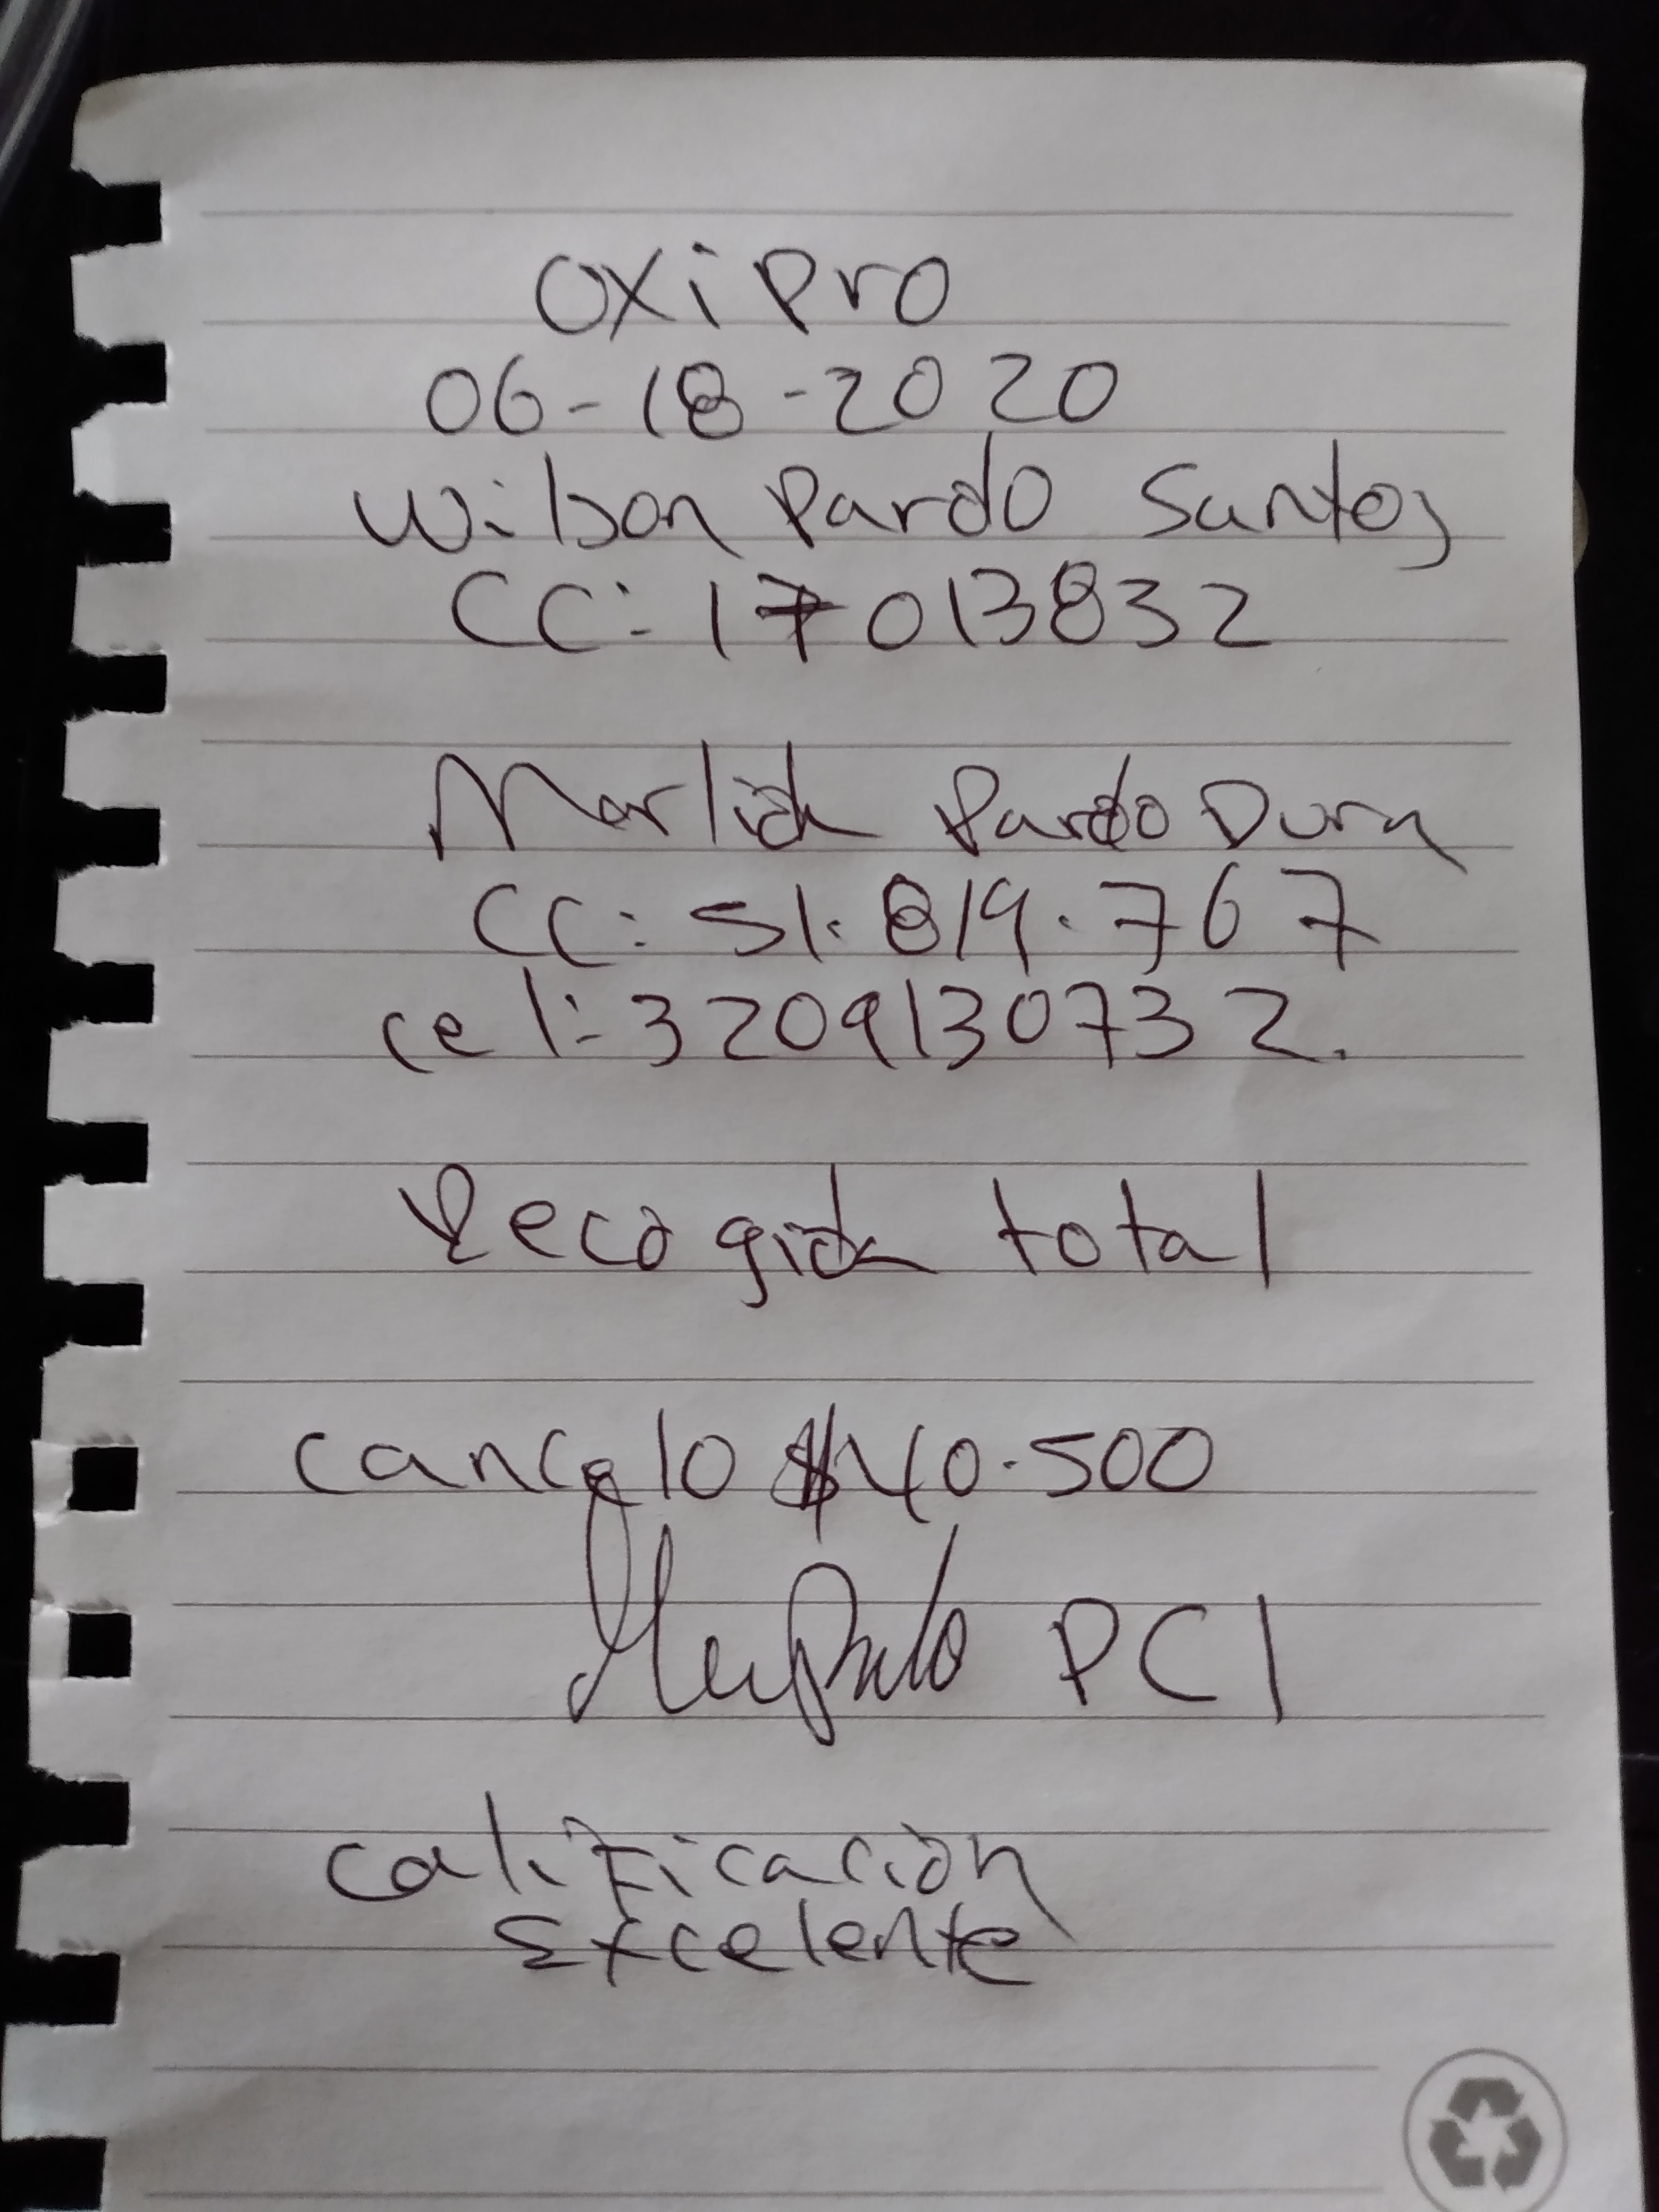 OXiPro
06-18-2020
Wilson Pardo Santos
CC: 17013832
Marlida Pardo Dura
CC: 51.819.767
cel: 3209130732.
Recogida total
cancelo $40.500
PCI
calificación
Excelente